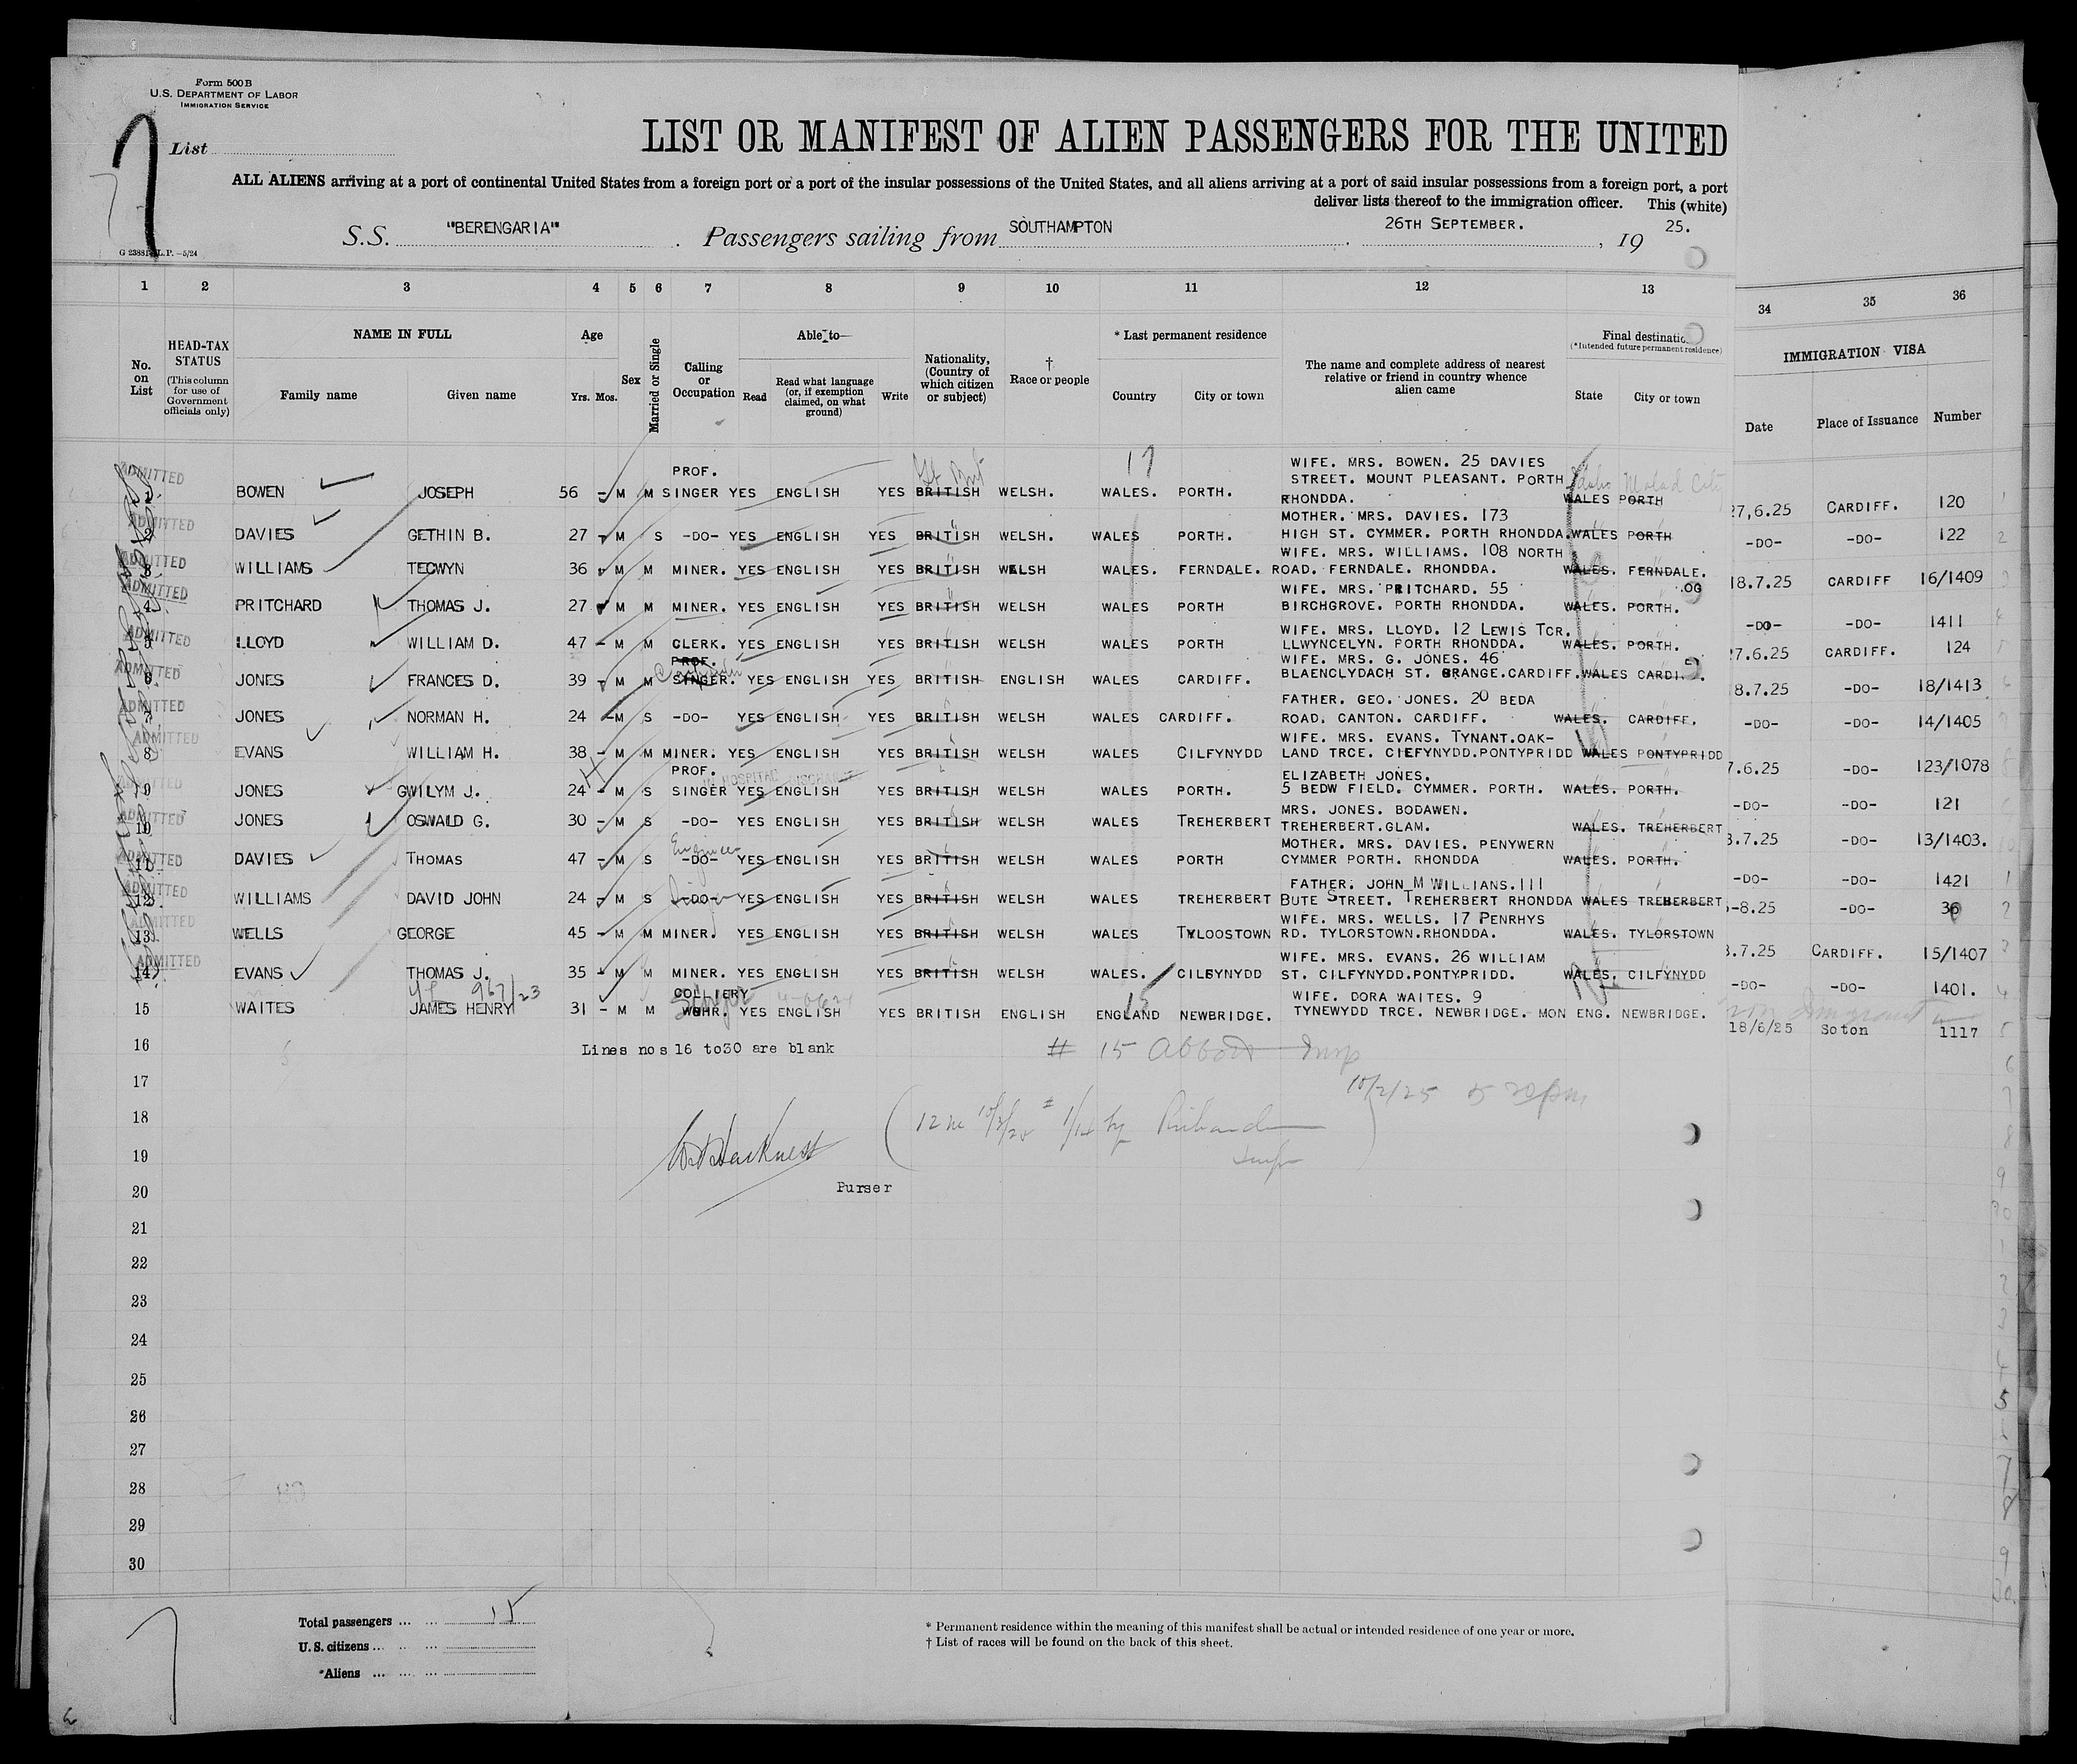 Form 500 B
U.S. DEPARTMENT OF LABOR
IMMIGRATION SERVICE
7
List
LIST OR MANIFEST OF ALIEN PASSENGERS FOR THE UNITED
ALL ALIENS arriving at a port of continental United States from a foreign port or a port of the insular possessions of the United States, and all aliens arriving at a port of said insular possessions from a foreign port, a port
deliver lists thereof to the immigration officer. This (white)
S.S. "BERENGARIA" . Passengers sailing from SOUTHAMPTON . 26TH SEPTEMBER. , 19 25.
1 2 3 4 5 6 7 8 9 10 11 12 13 34 35 36
No. on List
HEAD-TAX STATUS (This column for use of Government officials only)
NAME IN FULL
Family name Given name
Age
Yrs. Mos.
Sex
Married or Single
Calling or Occupation
Able to
Read
Read what language (or, if exemption claimed, on what ground)
Write
Nationality, (Country of which citizen or subject)
† Race or people
* Last permanent residence
Country City or town
The name and complete address of nearest relative or friend in country whence alien came
Final destination
(*Intended future permanent residence)
State City or town
IMMIGRATION VISA
Date Place of Issuance Number
ADMITTED 1 BOWEN JOSEPH 56 - M M PROF. SINGER YES ENGLISH YES BRITISH WELSH. WALES. PORTH. WIFE. MRS. BOWEN. 25 DAVIES STREET. MOUNT PLEASANT. PORTH RHONDDA. WALES PORTH Idaho Malad City 27,6.25 CARDIFF. 120
ADMITTED 2 DAVIES GETHIN B. 27 - M S -DO- YES ENGLISH YES BRITISH WELSH. WALES PORTH. MOTHER. MRS. DAVIES. 173 HIGH ST. CYMMER. PORTH RHONDDA. WALES PORTH -DO- -DO- 122
ADMITTED 3 WILLIAMS TECWYN 36 - M M MINER. YES ENGLISH YES BRITISH WELSH WALES. FERNDALE. WIFE. MRS. WILLIAMS. 108 NORTH ROAD. FERNDALE. RHONDDA. WALES. FERNDALE. 18.7.25 CARDIFF 16/1409
ADMITTED 4 PRITCHARD THOMAS J. 27 - M M MINER. YES ENGLISH YES BRITISH WELSH WALES PORTH WIFE. MRS. PRITCHARD. 55 BIRCHGROVE. PORTH RHONDDA. WALES. PORTH. -DO- -DO- 1411
ADMITTED 5 LLOYD WILLIAM D. 47 - M M CLERK. YES ENGLISH YES BRITISH WELSH WALES PORTH WIFE. MRS. LLOYD. 12 LEWIS TCR. LLWYNCELYN. PORTH RHONDDA. WALES. PORTH. 27.6.25 CARDIFF. 124
ADMITTED 6 JONES FRANCES D. 39 - M M PROF. SINGER. YES ENGLISH YES BRITISH ENGLISH WALES CARDIFF. WIFE. MRS. G. JONES. 46 BLAENCLYDACH ST. GRANGE.CARDIFF. WALES 18.7.25 -DO- 18/1413
ADMITTED 7 JONES NORMAN H. 24 - M S -DO- YES ENGLISH YES BRITISH WELSH WALES CARDIFF. FATHER. GEO. JONES. 20 BEDA ROAD. CANTON. CARDIFF. WALES. CARDIFF. -DO- -DO- 14/1405
ADMITTED 8 EVANS WILLIAM H. 38 - M M MINER. YES ENGLISH YES BRITISH WELSH WALES CILFYNYDD WIFE. MRS. EVANS. TYNANT.OAK-LAND TRCE. CIEFYNYDD.PONTYPRIDD WALES PONTYPRIDD 7.6.25 -DO- 123/1078
ADMITTED 9 JONES GWILYM J. 24 - M S PROF. SINGER YES ENGLISH YES BRITISH WELSH WALES PORTH. ELIZABETH JONES. 5 BEDW FIELD. CYMMER. PORTH. WALES. PORTH. -DO- -DO- 121
ADMITTED 10 JONES OSWALD G. 30 - M S -DO- YES ENGLISH YES BRITISH WELSH WALES TREHERBERT MRS. JONES. BODAWEN. TREHERBERT.GLAM. WALES. TREHERBERT 8.7.25 -DO- 13/1403.
ADMITTED 11 DAVIES THOMAS 47 - M S Engineer -DO- YES ENGLISH YES BRITISH WELSH WALES PORTH MOTHER. MRS. DAVIES. PENYWERN CYMMER PORTH. RHONDDA WALES. PORTH. -DO- -DO- 1421
ADMITTED 12 WILLIAMS DAVID JOHN 24 - M S Singer -DO- YES ENGLISH YES BRITISH WELSH WALES TREHERBERT FATHER. JOHN M WILLIANS. 111 BUTE STREET. TREHERBERT RHONDDA WALES TREHERBERT -8.25 -DO- 36
ADMITTED 13 WELLS GEORGE 45 - M M MINER. YES ENGLISH YES BRITISH WELSH WALES TYLOOSTOWN WIFE. MRS. WELLS. 17 PENRHYS RD. TYLORSTOWN.RHONDDA. WALES. TYLORSTOWN 8.7.25 CARDIFF. 15/1407
ADMITTED 14 EVANS THOMAS J. 35 - M M MINER. YES ENGLISH YES BRITISH WELSH WALES. CILFYNYDD WIFE. MRS. EVANS. 26 WILLIAM ST. CILFYNYDD.PONTYPRIDD. WALES. CILFYNYDD -DO- -DO- 1401.
15 WAITES JAMES HENRY 31 - M M COLLIERY WKHR. YES ENGLISH YES BRITISH ENGLISH ENGLAND NEWBRIDGE. WIFE. DORA WAITES. 9 TYNEWYDD TRCE. NEWBRIDGE. MON ENG. NEWBRIDGE. 18/6/25 Soton 1117
16 Lines nos 16 to30 are blank # 15 Abbott Insp
17 10/2/25
18
19
Purser
20
21
22
23
24
25
26
27
28
29
30
Total passengers ... ... 15
U.S. citizens ... ...
*Aliens ... ...
* Permanent residence within the meaning of this manifest shall be actual or intended residence of one year or more.
† List of races will be found on the back of this sheet.